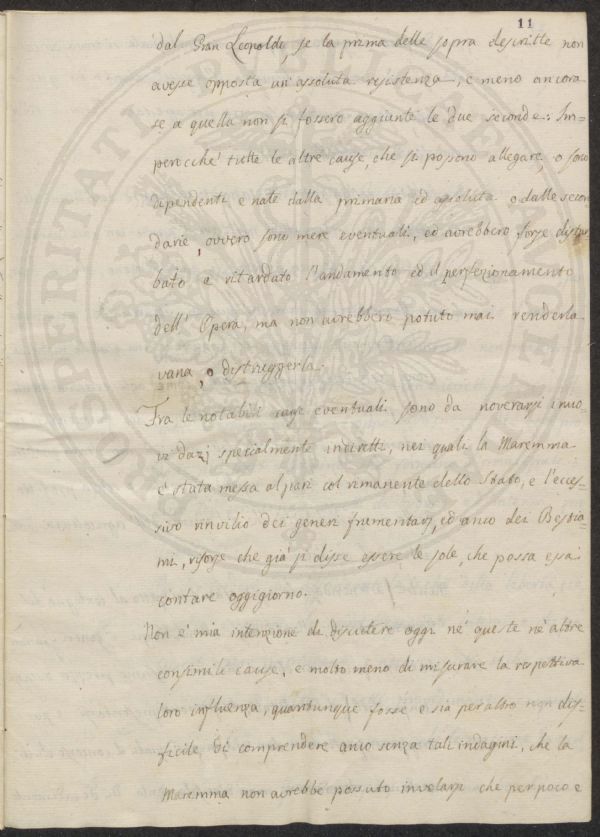 11
dal Gran Leopoldo, se la prima delle sopra descritte non
avesse opposta un'assoluta resistenza, e meno ancora
se a quella non si fossero aggiunte le due seconde: Im-
perocchè tutte le altre cause, che si possono allegare, o sono
dipendenti e nate dalla primaria ed assoluta o dalle secon
darie, ovvero sono mere eventuali, ed avrebbero forse distur
bato e ritardato l'andamento ed il perfezionamento
dell'Opera, ma non avrebbero potuto mai renderla
vana, o distruggerla.
Fra le notabili cause eventuali sono da noverarsi i nuo
vi dazj specialmente indiretti, nei quali la Maremma
è stata messa al pari col rimanente dello Stato, e l'ecces-
sivo rinvilio dei generi frumentarj, ed anco dei Bestia-
mi, risorse che già si disse essere le sole, che possa essa
contare oggigiorno.
Non è mia intenzione di discutere oggi nè queste nè altre
consimili cause, e molto meno di misurare la respettiva
loro influenza, quantunque fosse e sia per altro non dif-
ficile di comprendere anco senza tali indagini, che la
Maremma non avrebbe possuto involarsi che per poco e
PROSPERITATI PUBLICAE